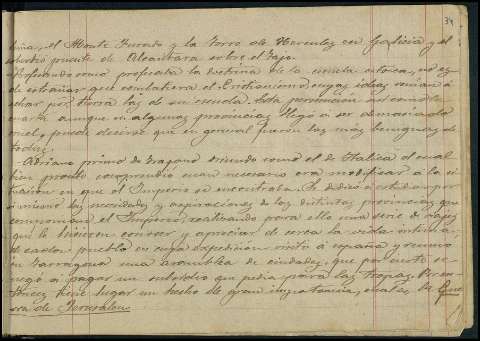 34
el Monte Furado y la torre de Hercules en Galicia y el
puente de Alcántara sobre el Tajo.
Profesando como profesaba la doctrina de la escuela estoica, no es
de estrañar que combatiera el Cristianismo cuyas ideas venian á
echar por tierra las de su escuela. Esta persecución asi como la
cuarta aunque en algunas provincias llegó á ser demasiado
cruel, puede decirse que en general fueron las más benignas de
todas.
Adriano primo de Trajano oriundo como él de Italica el cual
bien pronto comprendió cuan necesario era modificar á la si-
tuación en que el Imperio se encontraba. Se dedicó á estudiar por
si mismo las necesidades y aspiraciones de las distintas provincias que
componian el Imperio; realizando para ello una serie de viajes
que le hicieron conocer y apreciar de cerca la vida intima
de cada pueblo en cuya expedición visitó á españa y reunio
en Tarragona una asamblea de ciudades, que por cierto se
negó á pagar un subsidio que pedia para las tropas.
tiene lugar un hecho de gran importancia, cual es la Gue-
rra de Jerusalen.